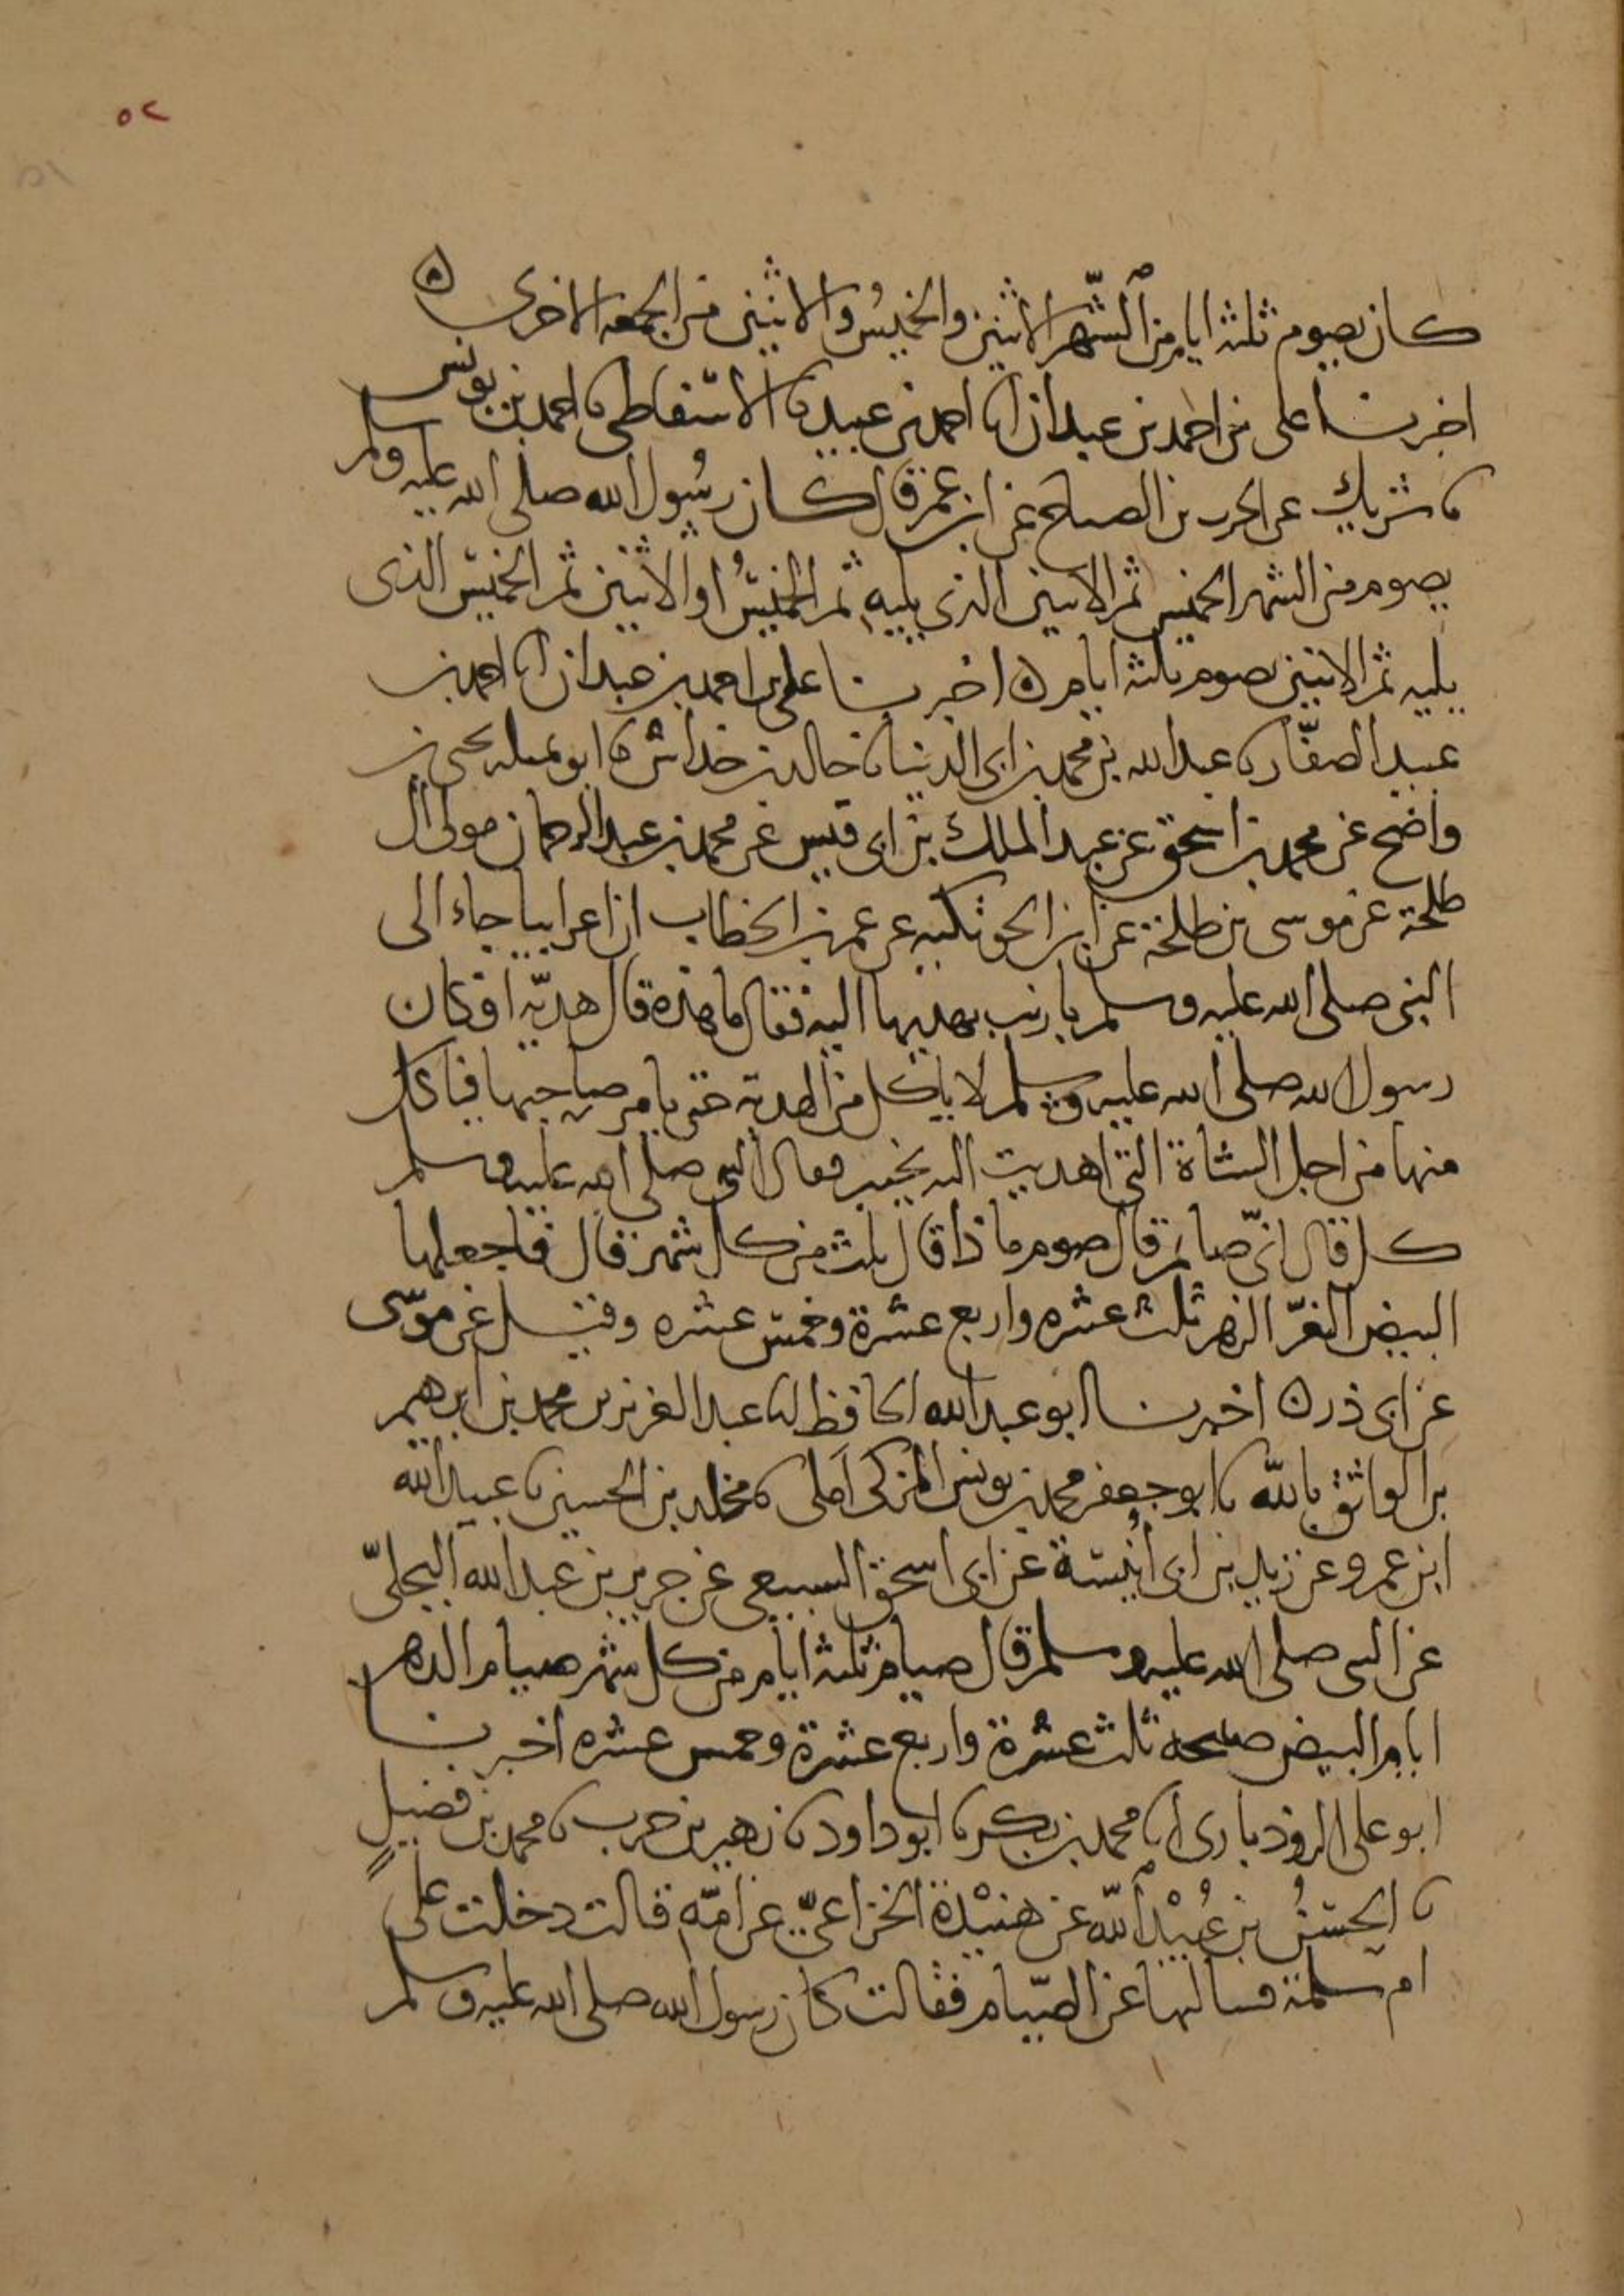 ٥٢
كان يصوم ثلثة ايام من الشهر الاثنين والخميس والاثنين من الجمعه الاخرى ه
اخبرنا على بن احمد بن عبدان انا احمد بن عبيد نا الاسفاطى نا احمد بن يونس
نا شريك عن الحر بن الصباح عن ابن عمر قال كان رسول الله صلى الله عليه وسلم
يصوم من الشهر الخميس ثم الاثنين الذى يليه ثم الخميس او الاثنين ثم الخميس الذى
يليه ثم الاثنين يصوم ثلثة ايام ه اخبرنا على بن احمد بن عبدان انا احمد بن
عبيد الصفّار نا عبد الله بن محمد بن ابى الدنيا نا خالد بن خداش نا ابو تميله يحيى بن
واضح عن محمد بن اسحق عن عبد الملك بن ابى قيس عن محمد بن عبد الرحمان مولى ال
طلحة عن موسى بن طلحة عن ابن الحوتكيه عن عمر بن الخطاب ان اعرابيا جاء الى
النبى صلى الله عليه وسلم بارنب يهديها اليه فقال ما هذه قال هديّه او كان
رسول الله صلى الله عليه وسلم لا ياكل من الهدية حتى يامر صاحبها فياكل
منها من اجل الشاة التى اهديت اليه بخيبر فقال النبى صلى الله عليه وسلم
كل قال انّى صائم قال صوم ماذا قال ثلث من كل شهر قال فاجعلها
البيض الغرّ الزهر ثلث عشره واربع عشرة وخمس عشره وقيل عن موسى
عن ابى ذر ه اخبرنا ابو عبد الله الحافظ انا عبد العزيز بن محمد بن ابرهيم
بن الواثق بالله نا ابو جعفر محمد بن يونس المزكى املى نا مخلد بن الحسين نا عبيد الله
ابن عمرو عن زيد بن ابى أنيسة عن ابى اسحق السبيعى عن جرير بن عبد الله البجلىّ
عن النبى صلى الله عليه وسلم قال صيام ثلثة ايام من كل شهر صيام الدهر
ايام البيض صبيحة ثلث عشرة واربع عشرة وخمس عشره اخبرنا
ابو على الروذبارى انا محمد بن بكر نا ابو داود نا زهير بن حرب نا محمد بن فضيلٍ
نا الحسنُ بن عُبيْد الله عن هنيْدة الخزاعىّ عن امّه قالت دخلت على
ام سلمة فسالتها عن الصيام فقالت كان رسول الله صلى الله عليه وسلم